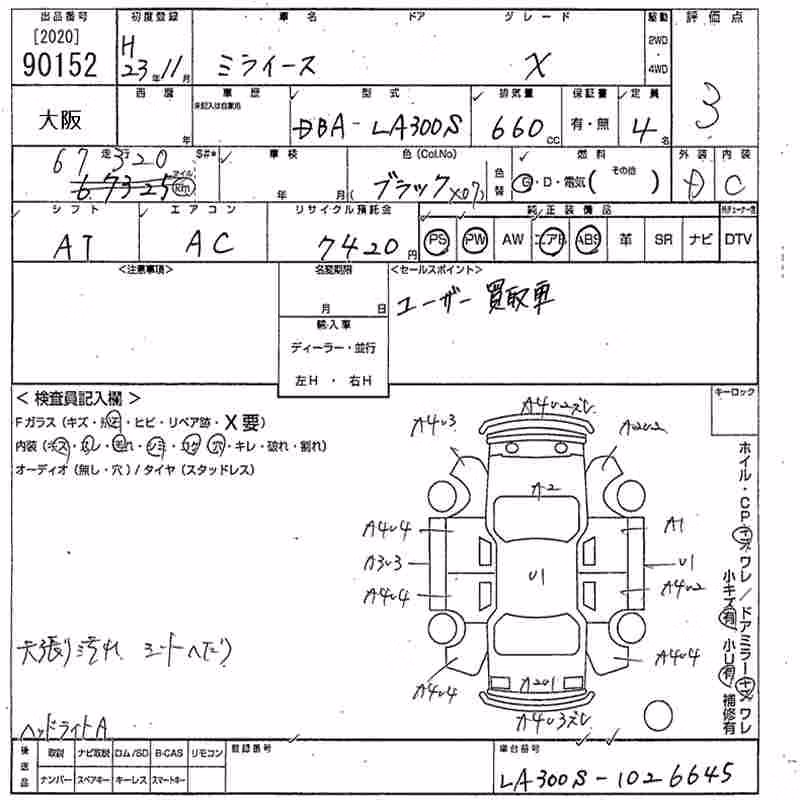 出品番号 初度登録 車名 ドア グレード 駆動 評価点
[2020] 90152 H 23年 11月 ミライース X 2WD・4WD 3
大阪 西暦 年 車歴 未記入は自家用 型式 DBA-LA300S 排気量 660cc 保証書 有・無 定員 4名
走行 67320 67325 マイル Km S#* 車検 年 月( 色(Col.No) ブラック X07) 色替 燃料 G・D・電気( その他 ) 外装 D 内装 C
シフト エアコン リサイクル預託金 純正装備品
AT AC 7420円 PS PW AW エアB ABS 革 SR ナビ DTV
<注意事項> 名変期限 <セールスポイント>
月 日 ユーザー買取車
輸入車
ディーラー・並行
左H・右H
<検査員記入欄> キーロック
Fガラス(キズ・補正・ヒビ・リペア跡・X要)
内装(キズ・汚レ・濡れ・シミ・コゲ・穴・キレ・破れ・割れ)
オーディオ(無し・穴)/タイヤ(スタッドレス)
A4U2ズレ
A4U3 A2U2
A2
A4U4 A1
A3U3 U1 U1
A4U4 A4U2
A4U4 A2U1 A4U4
A4U3ズレ
ホイル・CP キズ ワレ/ドアミラー キズ ワレ
小キズ有 小U有 補修有
天張り汚れ シートへたり
ヘッドライトA
後送品 取説 ナビ取説 ロム/SD B-CAS リモコン 登録番号 車台番号
ナンバー スペアキー キーレス スマートキー LA300S-1026645